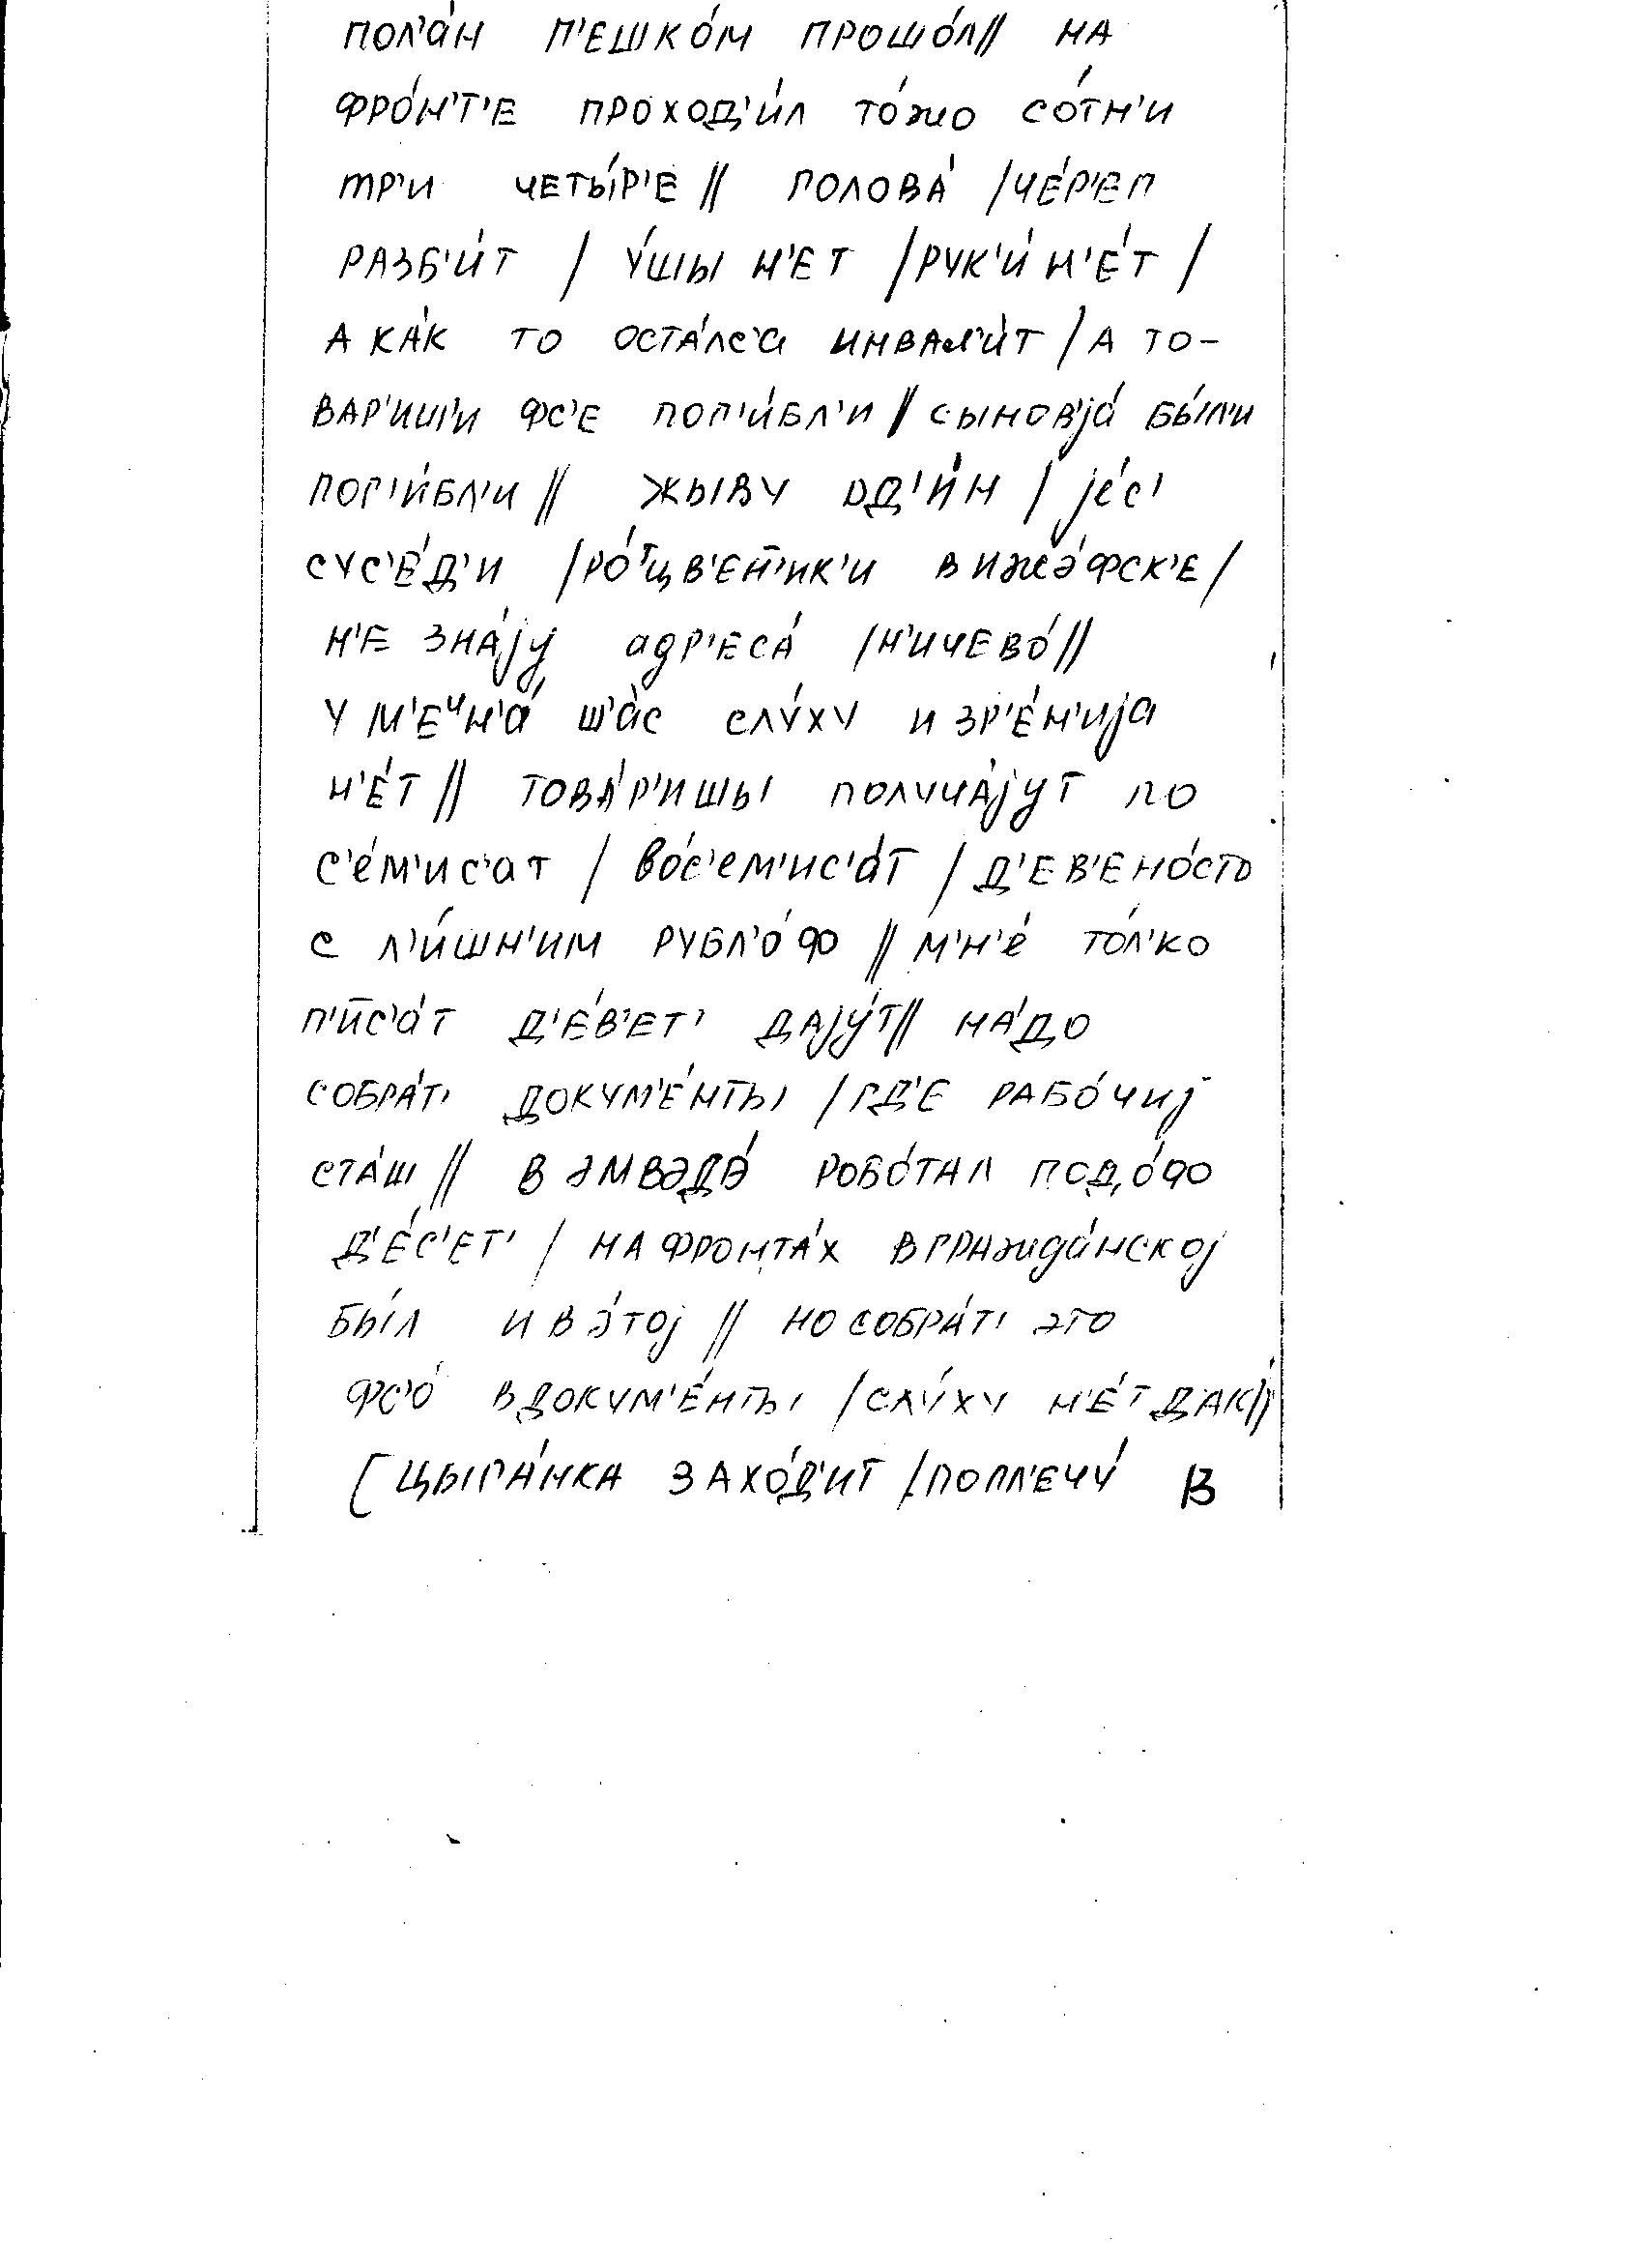 ПОЛ'А́Н П'ЕШКО́М ПРОШО́Л // НА
ФРО́Н'Т'Е ПРОХОД'И́Л ТО́ЖО СО́ТН'И
ТР'И ЧЕТЫ́Р'Е // ГОЛОВА́ / ЧЕ́Р'ЕП
РАЗБ'И́Т / У́ШЫ Н'ЕТ / РУК'И́ Н'Е́Т /
А КА́К ТО ОСТА́ЛС'а ИНВАЛ'И́Т / А ТО-
ВАР'ИШ'И ФС'Е ПОГ'И́БЛ'И // СЫНОВ'jа́ БЫ́Л'И
ПОГ'И́БЛ'И // ЖЫВУ ОД'И́Н / jе́с'
СУС'Е́Д'И / РО́ЦВ'ЕН̄'ИК'И В ИЖЭ́ФСК'Е /
Н'Е ЗНА́jу адР'ЕСА́ / Н'ИЧЕВО́ //
У М'ЕЧН'а́ Ш'а̀С СЛУ́ХУ И ЗР'Е́Н'Иjа
Н'Е́Т // ТОВА́Р'ИШЫ ПОЛУЧА́jУТ ПО
С'е́М'ИС'аТ / во́с'ем'ИС'а́Т / Д'ЕВ'ЕНО́СТО
С Л'И́ШН'ИМ РУБЛ'О́Ф // М'Н'е́ ТО́Л'КО
П'ИС̄'а́Т Д'Е́В'ЕТ' ДАjУ́Т // НА́ДО
СОБРА́Т' ДОКУМ'Е́НТЫ / ГД'Е РАБО́ЧИj
СТА́Ш // В ЭМВЭДЭ́ РОБО́ТАЛ ГОД,О́Ф
Д'Е́С'ЕТ' / НА ФРОНТА́Х В ГРАЖда́НСКОj
БЫ́Л И В Э́ТОj // НО СОБРА́Т' ЭТО
ФС'О́ В ДОКУМ'Е́НТЫ / СЛУ́ХУ Н'Е́Т ДАК //
[ ЦЫГА́НКА ЗАХО́Д'ИТ / ПОГЛ'ЕЧУ́ В